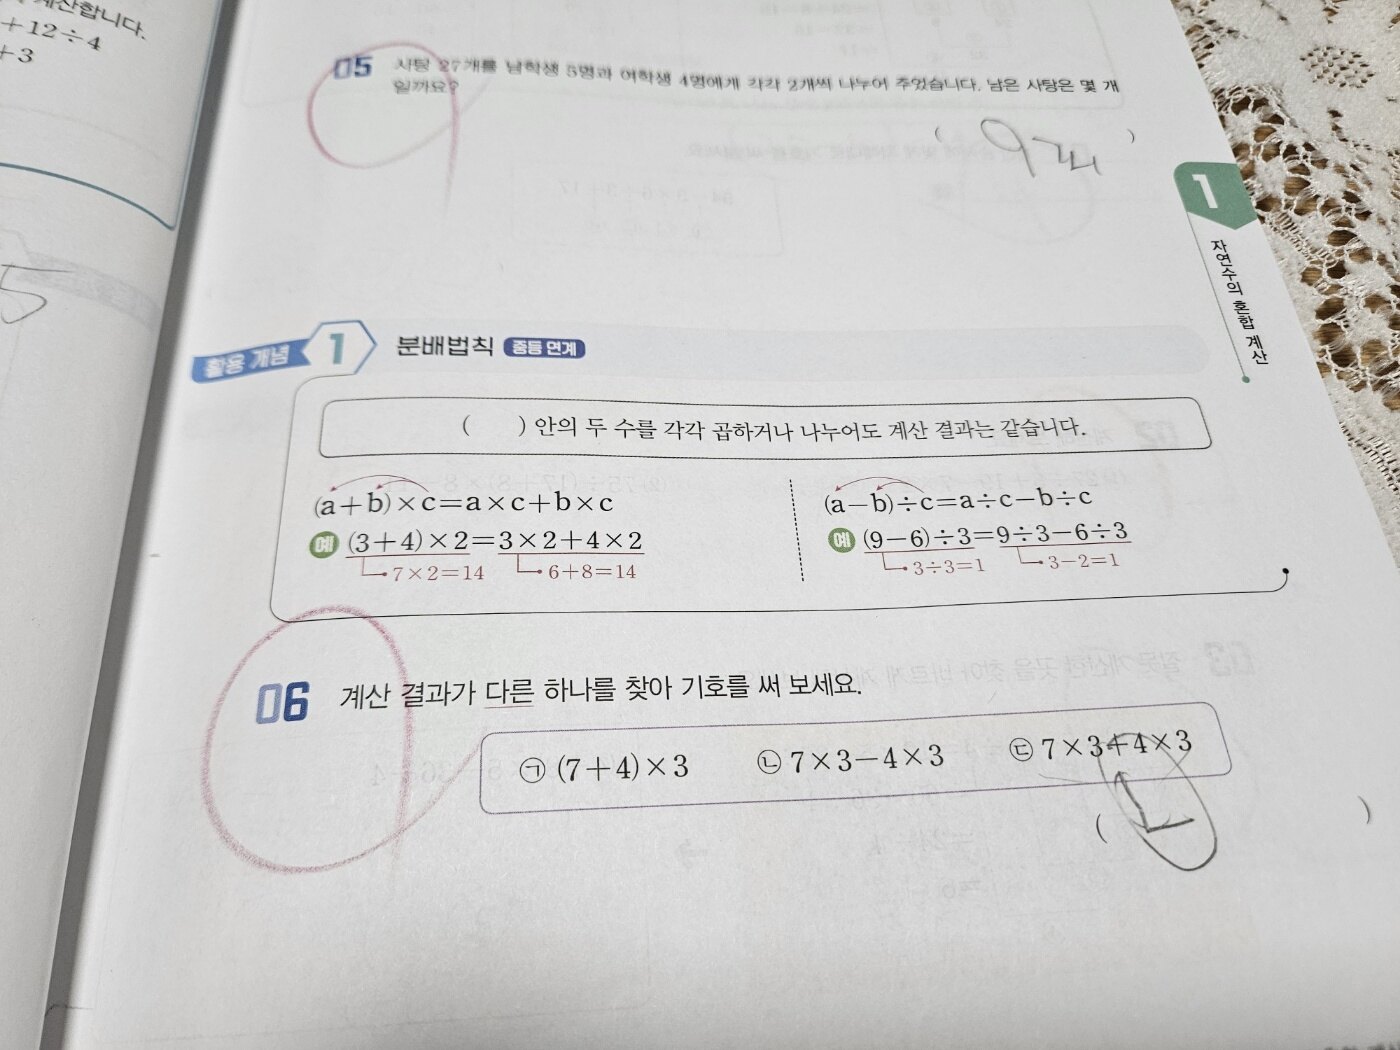 계산합니다.
+12÷4
+3
5
05 사탕 27개를 남학생 5명과 여학생 4명에게 각각 2개씩 나누어 주었습니다. 남은 사탕은 몇 개
일까요?
( 9개 )
1
자연수의 혼합 계산
활용 개념 1 분배법칙 중등 연계
( ) 안의 두 수를 각각 곱하거나 나누어도 계산 결과는 같습니다.
(a+b)×c=a×c+b×c
예 (3+4)×2=3×2+4×2
7×2=14 6+8=14
(a−b)÷c=a÷c−b÷c
예 (9−6)÷3=9÷3−6÷3
3÷3=1 3−2=1
06 계산 결과가 다른 하나를 찾아 기호를 써 보세요.
㉠ (7+4)×3 ㉡ 7×3−4×3 ㉢ 7×3+4×3
( ㉡ )